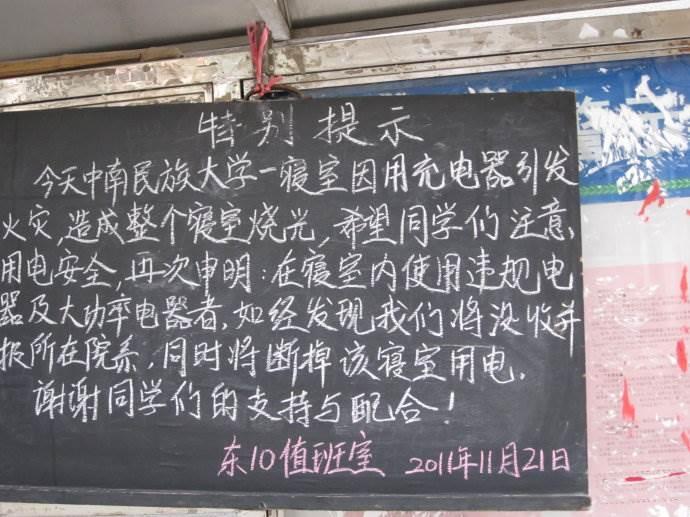 特别提示
今天中南民族大学一寝室因用充电器引发
火灾,造成整个寝室烧光,希望同学们注意
用电安全,再次申明:在寝室内使用违规电
器及大功率电器者,如经发现我们将没收并
报所在院系,同时将断掉该寝室用电.
谢谢同学们的支持与配合!
东10值班室 2011年11月21日